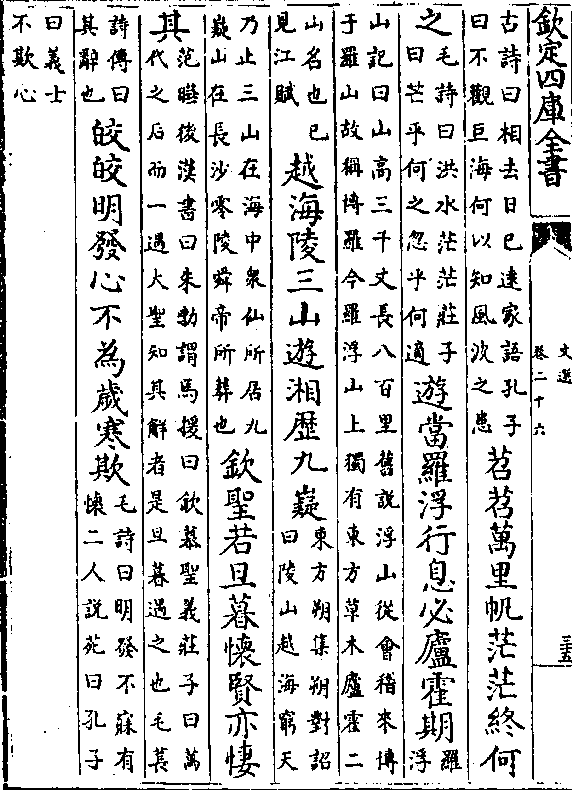 欽定四庫全書
文選
卷二十六
三五
古詩曰相去日已逺家語孔子
曰不觀巨海何以知風波之患
苕苕萬里帆茫茫終何
之
毛詩曰洪水茫茫莊子
曰芒乎何之忽乎何適
遊當羅浮行息必廬霍期
羅
浮
山記曰山高三千丈長八百里舊説浮山從會稽來博
于羅山故稱博羅今羅浮山上獨有東方草木廬霍二
山名也已
見江賦
越海陵三山遊湘歴九嶷
東方朔集朔對詔
曰陵山越海窮天
乃止三山在海中衆仙所居九
嶷山在長沙零陵舜帝所葬也
欽聖若旦暮懷賢亦悽
其
范曄後漢書曰朱勃謂馬援曰欽慕聖義莊子曰萬
代之后而一遇大聖知其解者是旦暮遇之也毛萇
詩傳曰
其辭也
皎皎明發心不為歳寒欺
毛詩曰明發不寐有
懷二人説苑曰孔子
曰義士
不欺心